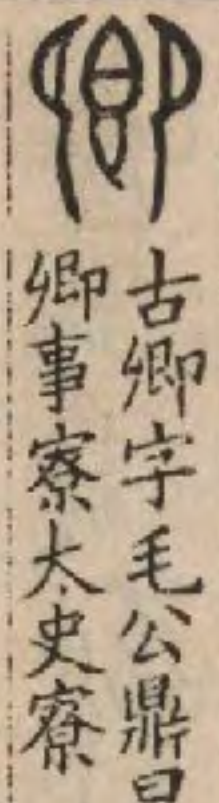 卿
古卿字毛公鼎曰
卿事寮太史寮